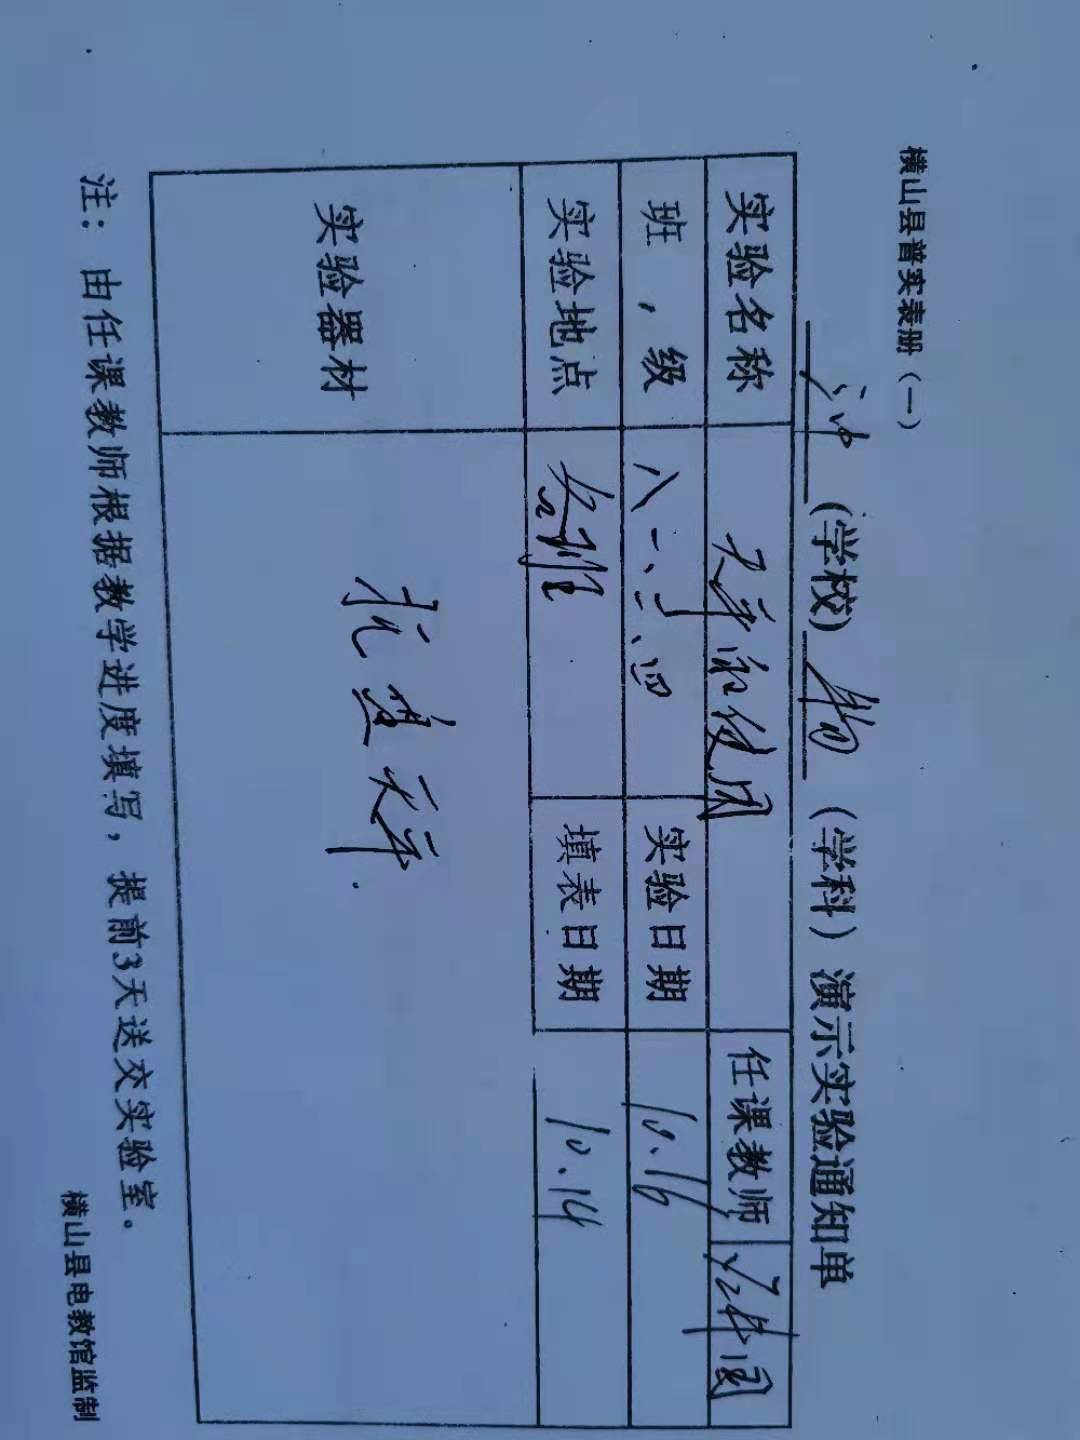 横山县普实表册（一）
（学校）物（学科）演示实验通知单
实验名称 天平的使用 任课教师
班，级 八一、二、四 实验日期 10.16
实验地点 各班 填表日期 10.14
实验器材 托盘天平
注：由任课教师根据教学进度填写，提前3天送交实验室。
横山县电教馆监制